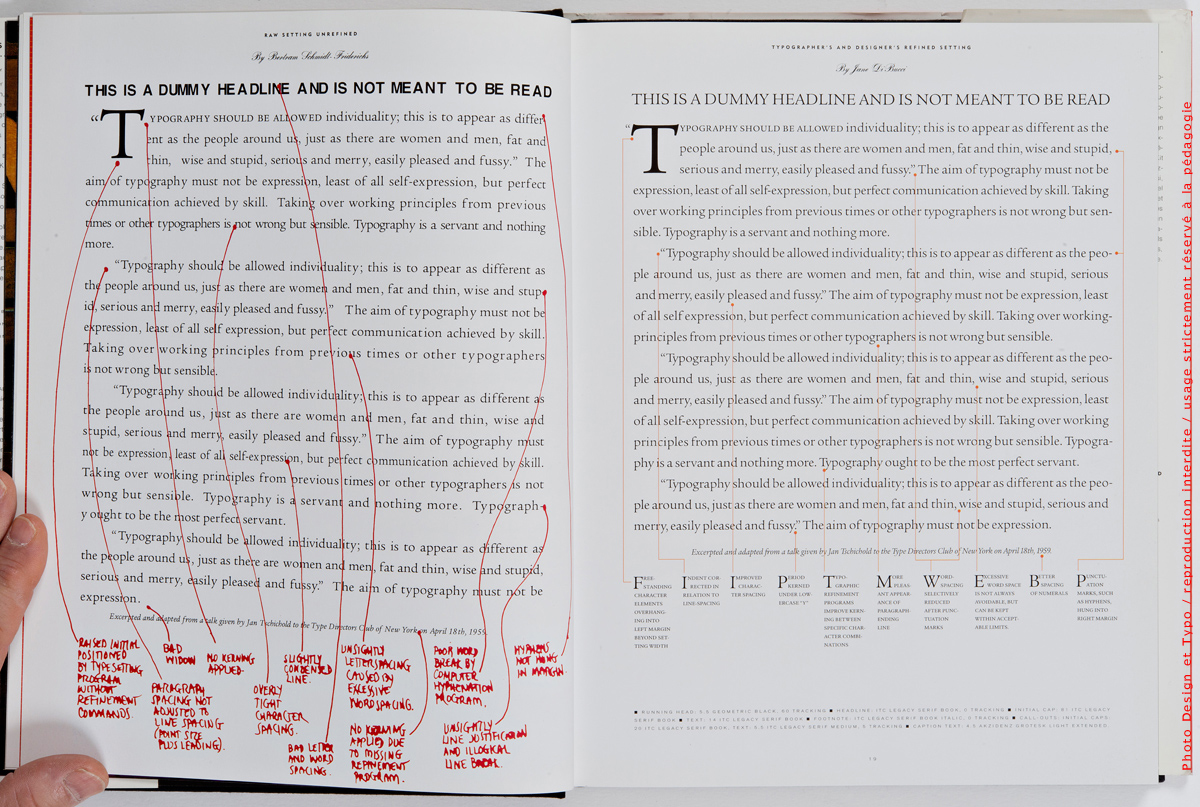 RAW SETTING UNREFINED
By Bertram Schmidt-Friderichs
THIS IS A DUMMY HEADLINE AND IS NOT MEANT TO BE READ
“TYPOGRAPHY SHOULD BE ALLOWED individuality; this is to appear as differ
ent as the people around us, just as there are women and men, fat and
thin, wise and stupid, serious and merry, easily pleased and fussy.” The
aim of typography must not be expression, least of all self-expression, but perfect
communication achieved by skill. Taking over working principles from previous
times or other typographers is not wrong but sensible. Typography is a servant and nothing
more.
“Typography should be allowed individuality; this is to appear as different as
the people around us, just as there are women and men, fat and thin, wise and stup
id, serious and merry, easily pleased and fussy.” The aim of typography must not be
expression, least of all self expression, but perfect communication achieved by skill.
Taking over working principles from previous times or other typographers
is not wrong but sensible.
“Typography should be allowed individuality; this is to appear as different as
the people around us, just as there are women and men, fat and thin, wise and
stupid, serious and merry, easily pleased and fussy.” The aim of typography must
not be expression, least of all self-expression, but perfect communication achieved by skill.
Taking over working principles from previous times or other typographers is not
wrong but sensible. Typography is a servant and nothing more. Typograph
y ought to be the most perfect servant.
“Typography should be allowed individuality; this is to appear as different as
the people around us, just as there are women and men, fat and thin, wise and stupid,
serious and merry, easily pleased and fussy.” The aim of typography must not be
expression.
Excerpted and adapted from a talk given by Jan Tschichold to the Type Directors Club of New York on April 18th, 1959.
RAISED INITIAL
POSITIONED
BY TYPESETTING
PROGRAM
WITHOUT
REFINEMENT
COMMANDS.
BAD
WIDOW
PARAGRAPH
SPACING NOT
ADJUSTED TO
LINE SPACING
(POINT SIZE
PLUS LEADING).
NO KERNING
APPLIED.
OVERLY
TIGHT
CHARACTER
SPACING.
SLIGHTLY
CONDENSED
LINE.
BAD LETTER
AND WORD
SPACING.
UNSIGHTLY
LETTERSPACING
CAUSED BY
EXCESSIVE
WORDSPACING.
NO KERNING
APPLIED DUE
TO MISSING
REFINEMENT
PROGRAM.
POOR WORD
BREAK BY
COMPUTER
HYPHENATION
PROGRAM.
UNSIGHTLY
LINE JUSTIFICATION
AND ILLOGICAL
LINE BREAK.
HYPHENS
NOT HUNG
IN MARGIN.
TYPOGRAPHER'S AND DESIGNER'S REFINED SETTING
By Jane Di Bucci
THIS IS A DUMMY HEADLINE AND IS NOT MEANT TO BE READ
“TYPOGRAPHY SHOULD BE ALLOWED individuality; this is to appear as different as the
people around us, just as there are women and men, fat and thin, wise and stupid,
serious and merry, easily pleased and fussy.” The aim of typography must not be
expression, least of all self-expression, but perfect communication achieved by skill. Taking
over working principles from previous times or other typographers is not wrong but sen-
sible. Typography is a servant and nothing more.
“Typography should be allowed individuality; this is to appear as different as the peo-
ple around us, just as there are women and men, fat and thin, wise and stupid, serious
and merry, easily pleased and fussy.” The aim of typography must not be expression, least
of all self expression, but perfect communication achieved by skill. Taking over working-
principles from previous times or other typographers is not wrong but sensible.
“Typography should be allowed individuality; this is to appear as different as the peo-
ple around us, just as there are women and men, fat and thin, wise and stupid, serious
and merry, easily pleased and fussy.” The aim of typography must not be expression, least
of all self-expression, but perfect communication achieved by skill. Taking over working
principles from previous times or other typographers is not wrong but sensible. Typogra-
phy is a servant and nothing more. Typography ought to be the most perfect servant.
“Typography should be allowed individuality; this is to appear as different as the peo-
ple around us, just as there are women and men, fat and thin, wise and stupid, serious and
merry, easily pleased and fussy.” The aim of typography must not be expression.
Excerpted and adapted from a talk given by Jan Tschichold to the Type Directors Club of New York on April 18th, 1959.
FREE-
STANDING
CHARACTER
ELEMENTS
OVERHANG-
ING INTO
LEFT MARGIN
BEYOND SET-
TING WIDTH
INDENT COR-
RECTED IN
RELATION TO
LINE-SPACING
IMPROVED
CHARAC-
TER SPACING
PERIOD
KERNED
UNDER LOW-
ERCASE "Y"
TYPO-
GRAPHIC
REFINEMENT
PROGRAMS
IMPROVE KERN-
ING BETWEEN
SPECIFIC CHAR-
ACTER COMBI-
NATIONS
MORE
PLEAS-
ANT APPEAR-
ANCE OF
PARAGRAPH-
ENDING
LINE
WORD-
SPACING
SELECTIVELY
REDUCED
AFTER PUNC-
TUATION
MARKS
EXCESSIVE
WORD SPACE
IS NOT ALWAYS
AVOIDABLE, BUT
CAN BE KEPT
WITHIN ACCEPT-
ABLE LIMITS.
BETTER
SPACING
OF NUMERALS
PUNCTU-
ATION
MARKS, SUCH
AS HYPHENS,
HUNG INTO
RIGHT MARGIN
19
Photo Design et Typo / reproduction interdite / usage strictement réservé à la pédagogie